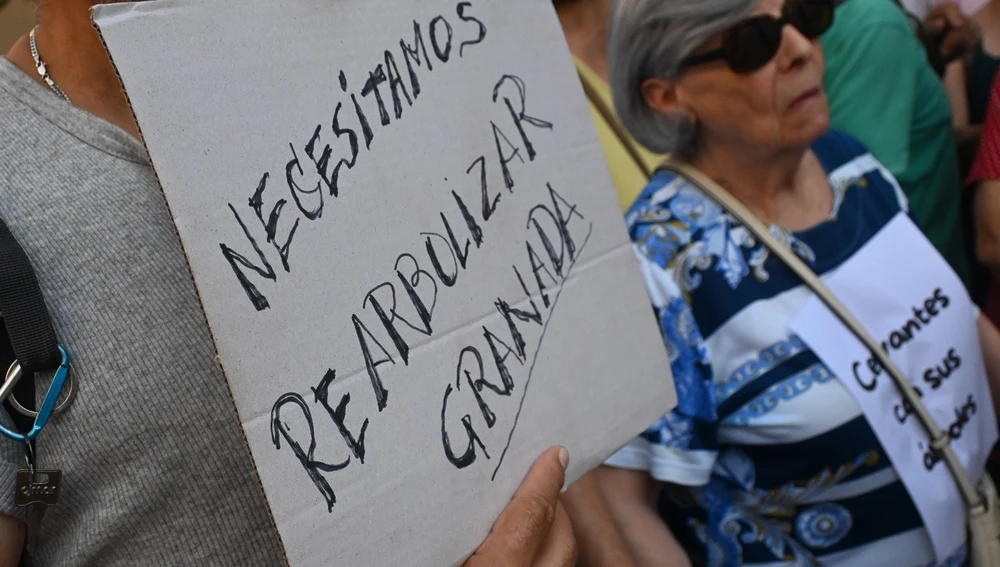 NECESITAMOS
REARBOLIZAR
GRANADA
Cervantes
con sus
árboles